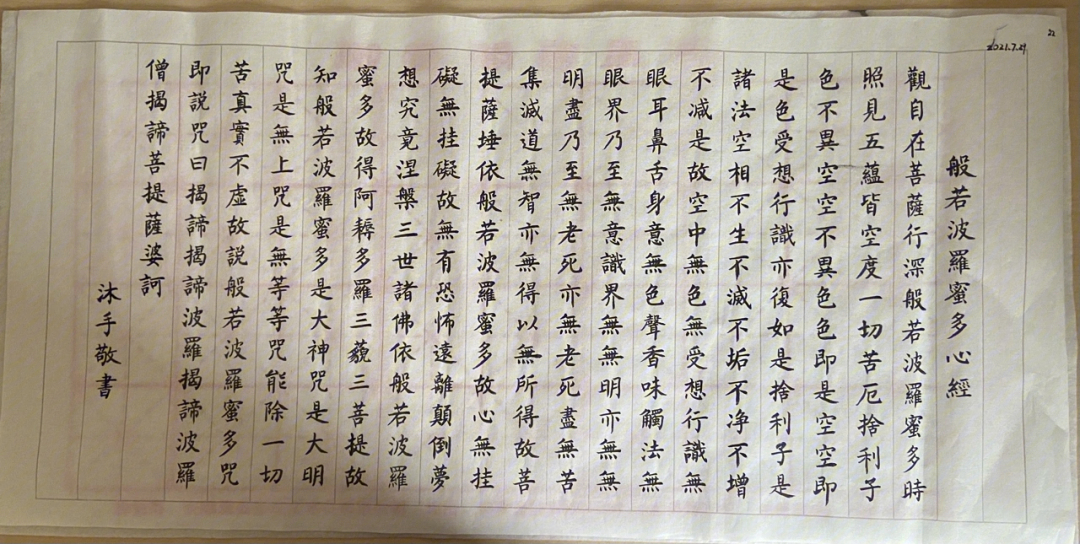 22
2021.7.29
般若波羅蜜多心經
觀自在菩薩行深般若波羅蜜多時
照見五蘊皆空度一切苦厄捨利子
色不異空空不異色色即是空空即
是色受想行識亦復如是捨利子是
諸法空相不生不滅不垢不净不增
不减是故空中無色無受想行識無
眼耳鼻舌身意無色聲香味觸法無
眼界乃至無意識界無無明亦無無
明盡乃至無老死亦無老死盡無苦
集滅道無智亦無得以無所得故菩
提薩埵依般若波羅蜜多故心無挂
礙無挂礙故無有恐怖遠離顛倒夢
想究竟涅槃三世諸佛依般若波羅
蜜多故得阿耨多羅三藐三菩提故
知般若波羅蜜多是大神咒是大明
咒是無上咒是無等等咒能除一切
苦真實不虛故説般若波羅蜜多咒
即説咒曰揭諦揭諦波羅揭諦波羅
僧揭諦菩提薩婆訶
沐手敬書